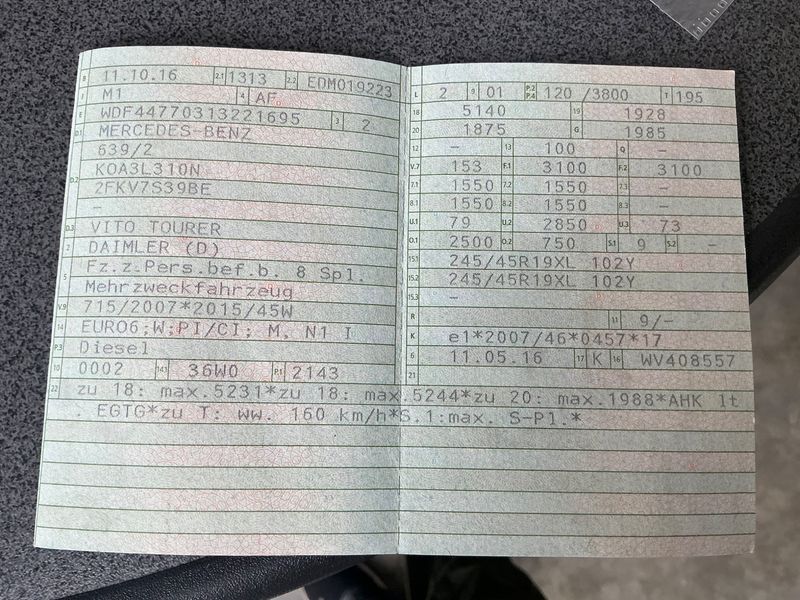 B 11.10.16 2.1 1313 2.2 EDM019223
J M1 4 AF
E WDF44770313221695 3 2
D.1 MERCEDES-BENZ
639/2
D.2 KOA3L310N
2FKV7S39BE
–
D.3 VITO TOURER
2 DAIMLER (D)
5 Fz.z.Pers.bef.b. 8 Spl.
Mehrzweckfahrzeug
V.9 715/2007*2015/45W
14 EURO6;W;PI/CI; M, N1 I
P.3 Diesel
10 0002 14.1 36W0 P.1 2143
L 2 9 01 P.2 P.4 120 /3800 T 195
18 5140 19 1928
20 1875 G 1985
12 – 13 100 Q –
V.7 153 F.1 3100 F.2 3100
7.1 1550 7.2 1550 7.3 –
8.1 1550 8.2 1550 8.3 –
U.1 79 U.2 2850 U.3 73
O.1 2500 O.2 750 S.1 9 S.2 –
15.1 245/45R19XL 102Y
15.2 245/45R19XL 102Y
15.3 –
R 11 9/–
K e1*2007/46*0457*17
6 11.05.16 17 K 16 WV408557
21
22 zu 18: max.5231*zu 18: max.5244*zu 20: max.1988*AHK lt
. EGTG*zu T: ww. 160 km/h*S.1:max. S-Pl.*